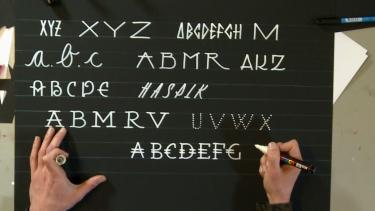 XYZ XYZ ABCDEFGH M
a.b.c ABMR AKZ
ABCDE HASPIK
ABMRV UVWX
ABCDEFG